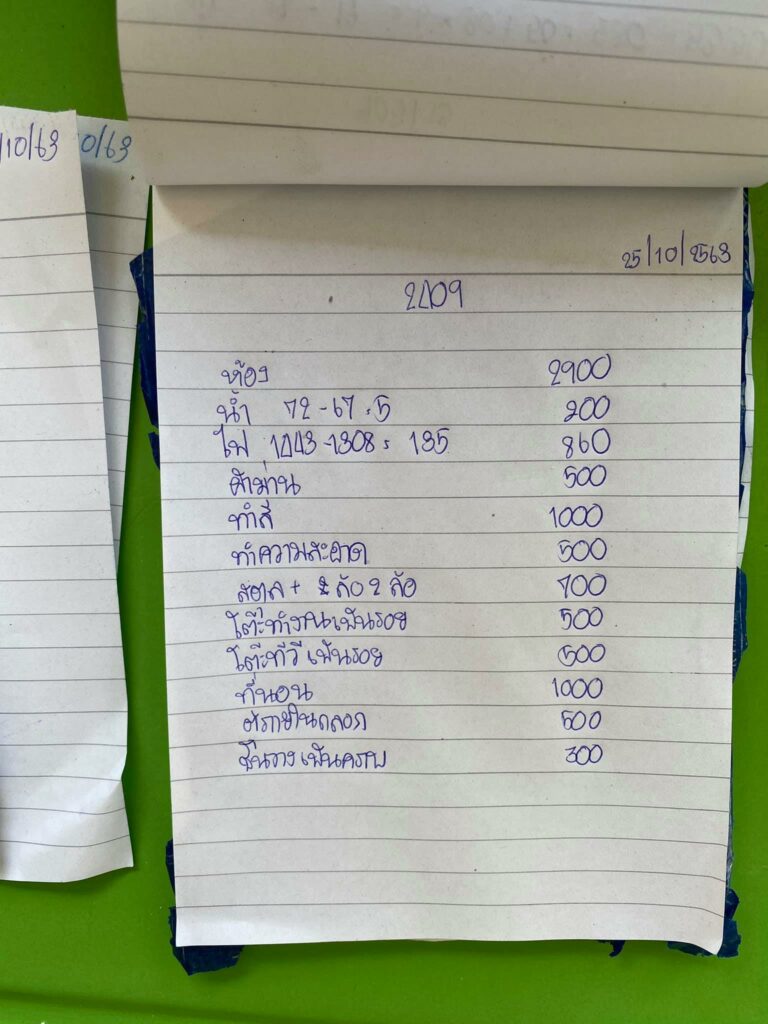 /10/63
0/63
25/10/2563
2409
ห้อง 2900
น้ำ 72-67=5 200
ไฟ 1443-1308= 135 860
ผ้าม่าน 500
ทำสี 1000
ทำความสะอาด 500
2 ล้อ 700
โต๊ะทำงานเป็นรอย 500
โต๊ะทีวีเป็นรอย 500
ที่นอน 1000
500
ชั้นวางเป็นคราบ 300